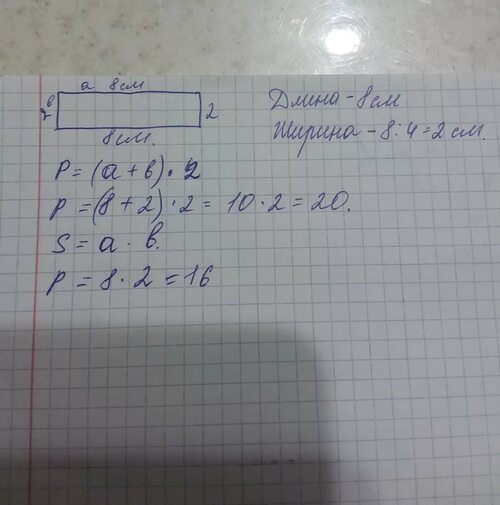 а 8 см
в
2
2
8 см.
Длина - 8 см
Ширина - 8 : 4 = 2 см.
P = (a + в) · 2
P = (8 + 2) · 2 = 10 · 2 = 20.
S = a · в.
P = 8 · 2 = 16